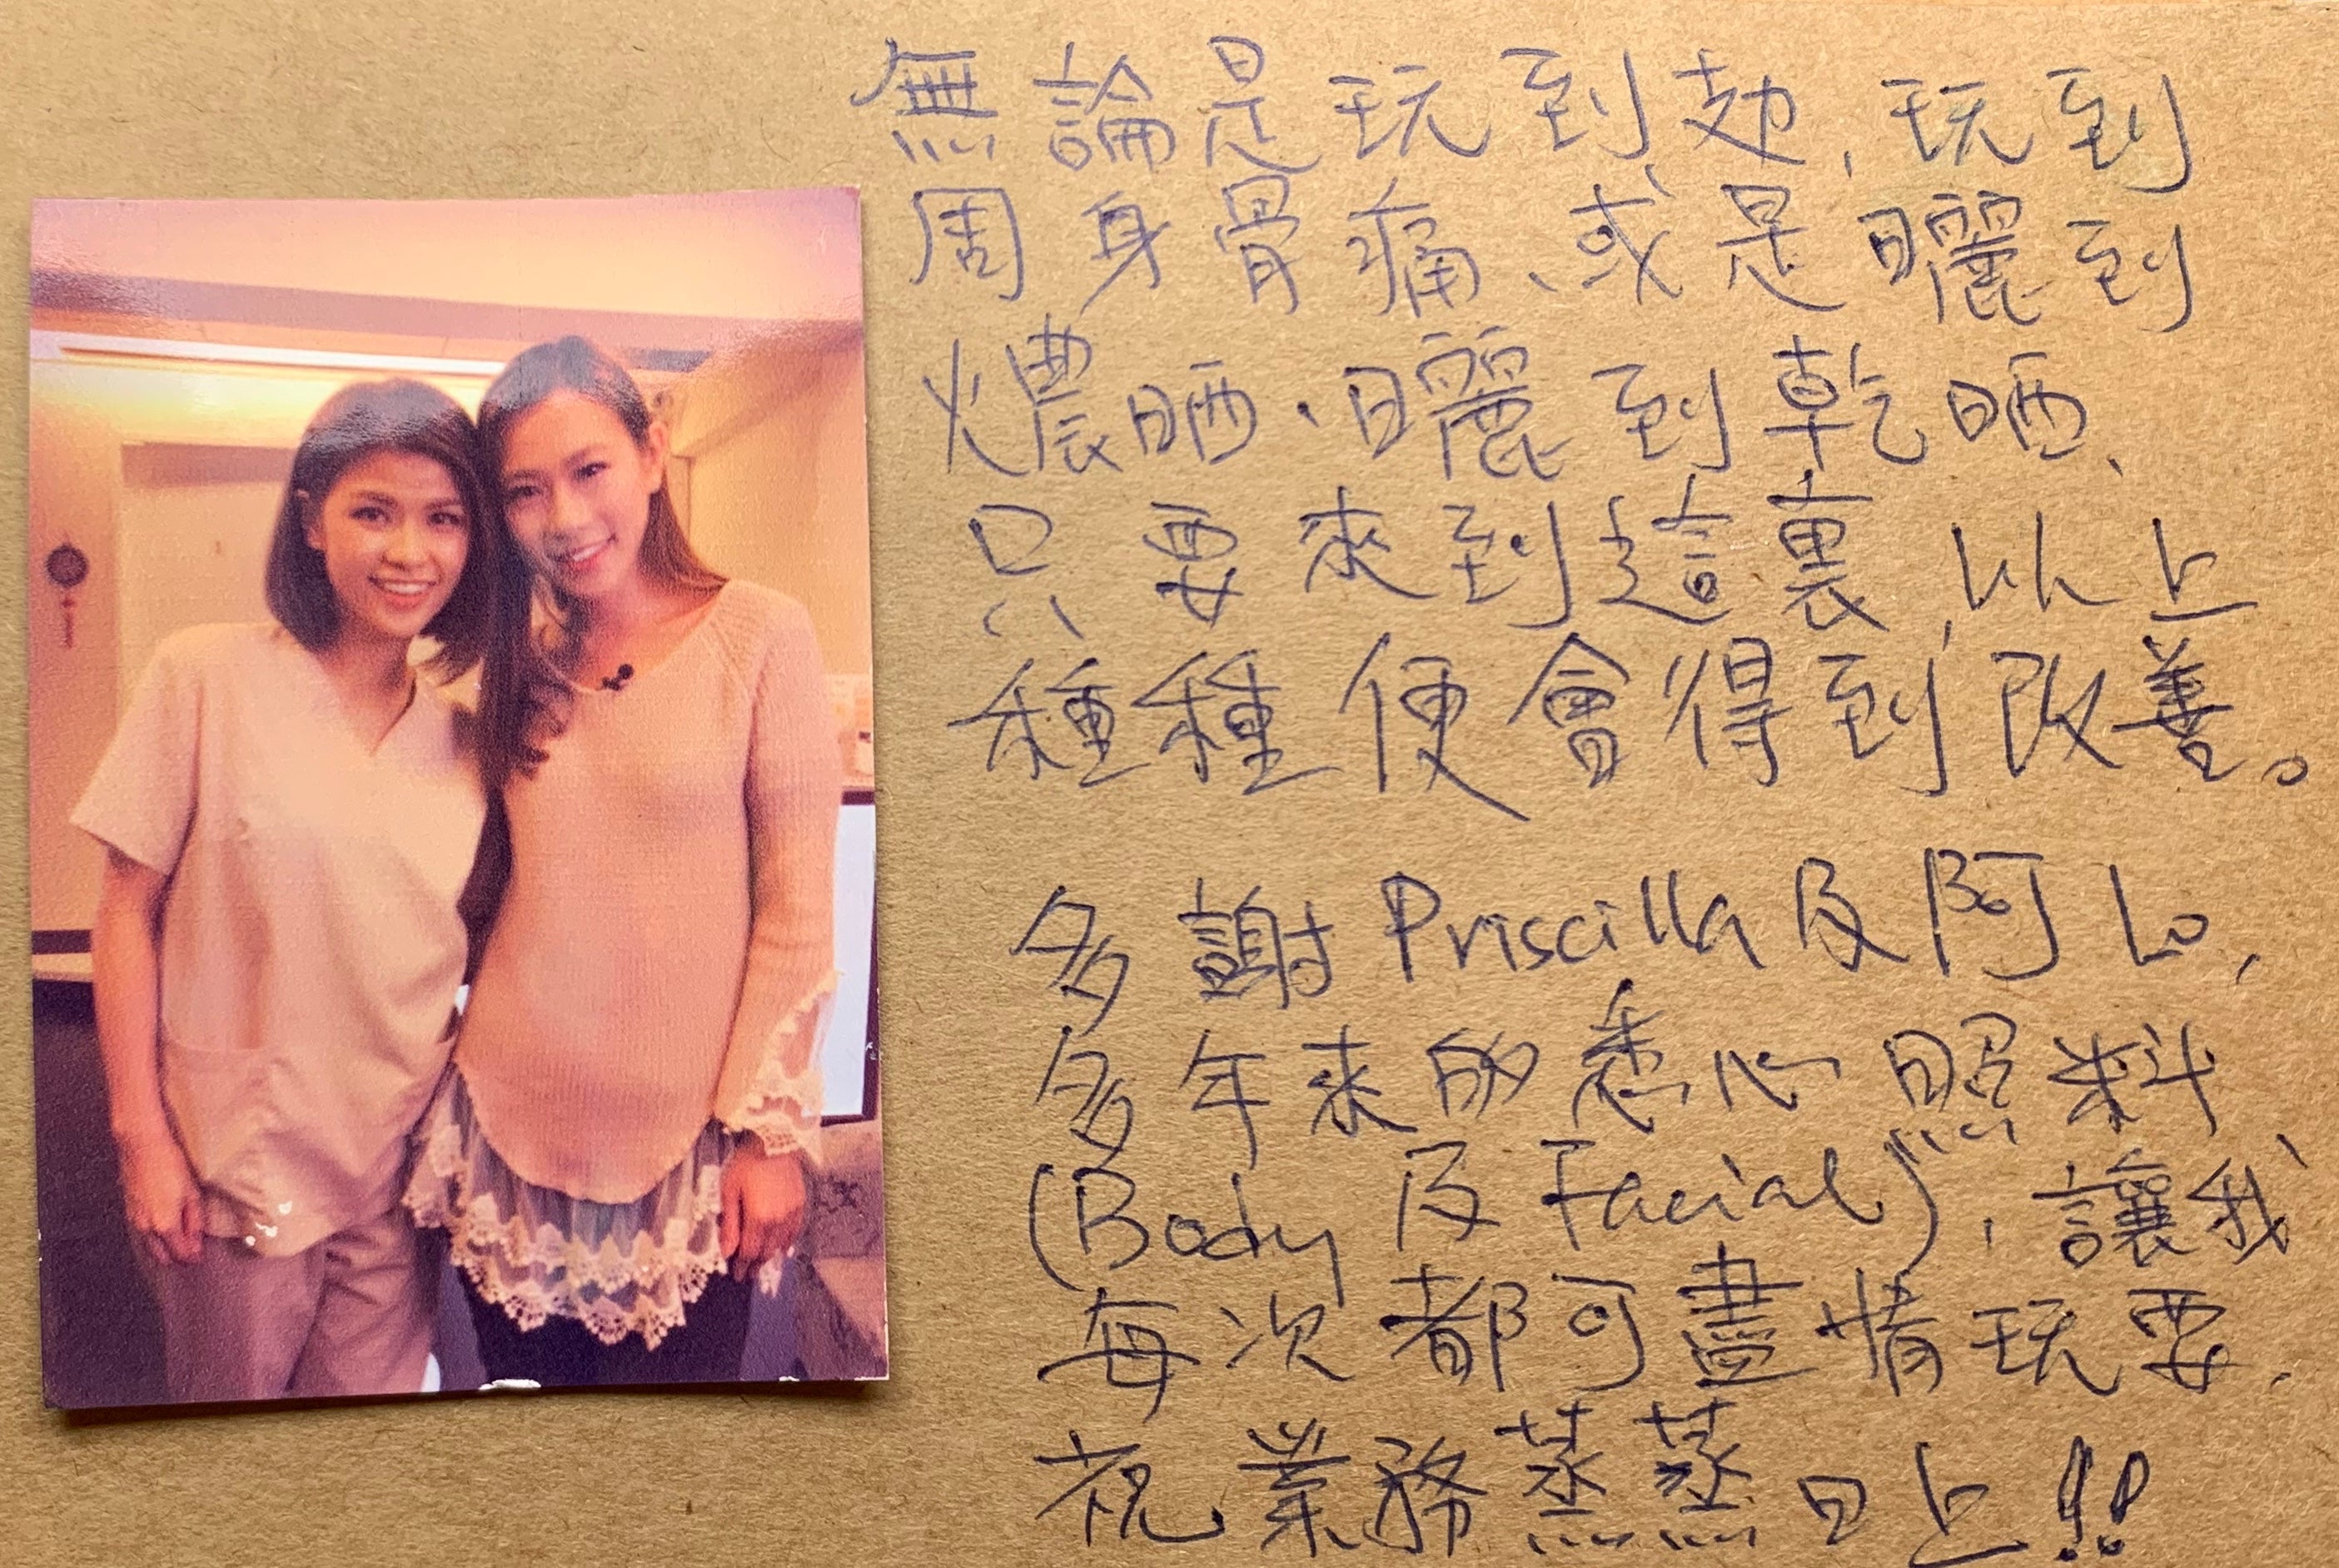 無論是玩到攰,玩到
周身骨痛、或是曬到
燶晒、曬到乾晒、
只要來到這裏,以上
種種便會得到改善。
多謝Priscilla及阿Lo,
多年來的悉心照料
(Body及Facial),讓我
每次都可盡情玩耍.
祝業務蒸蒸日上!!